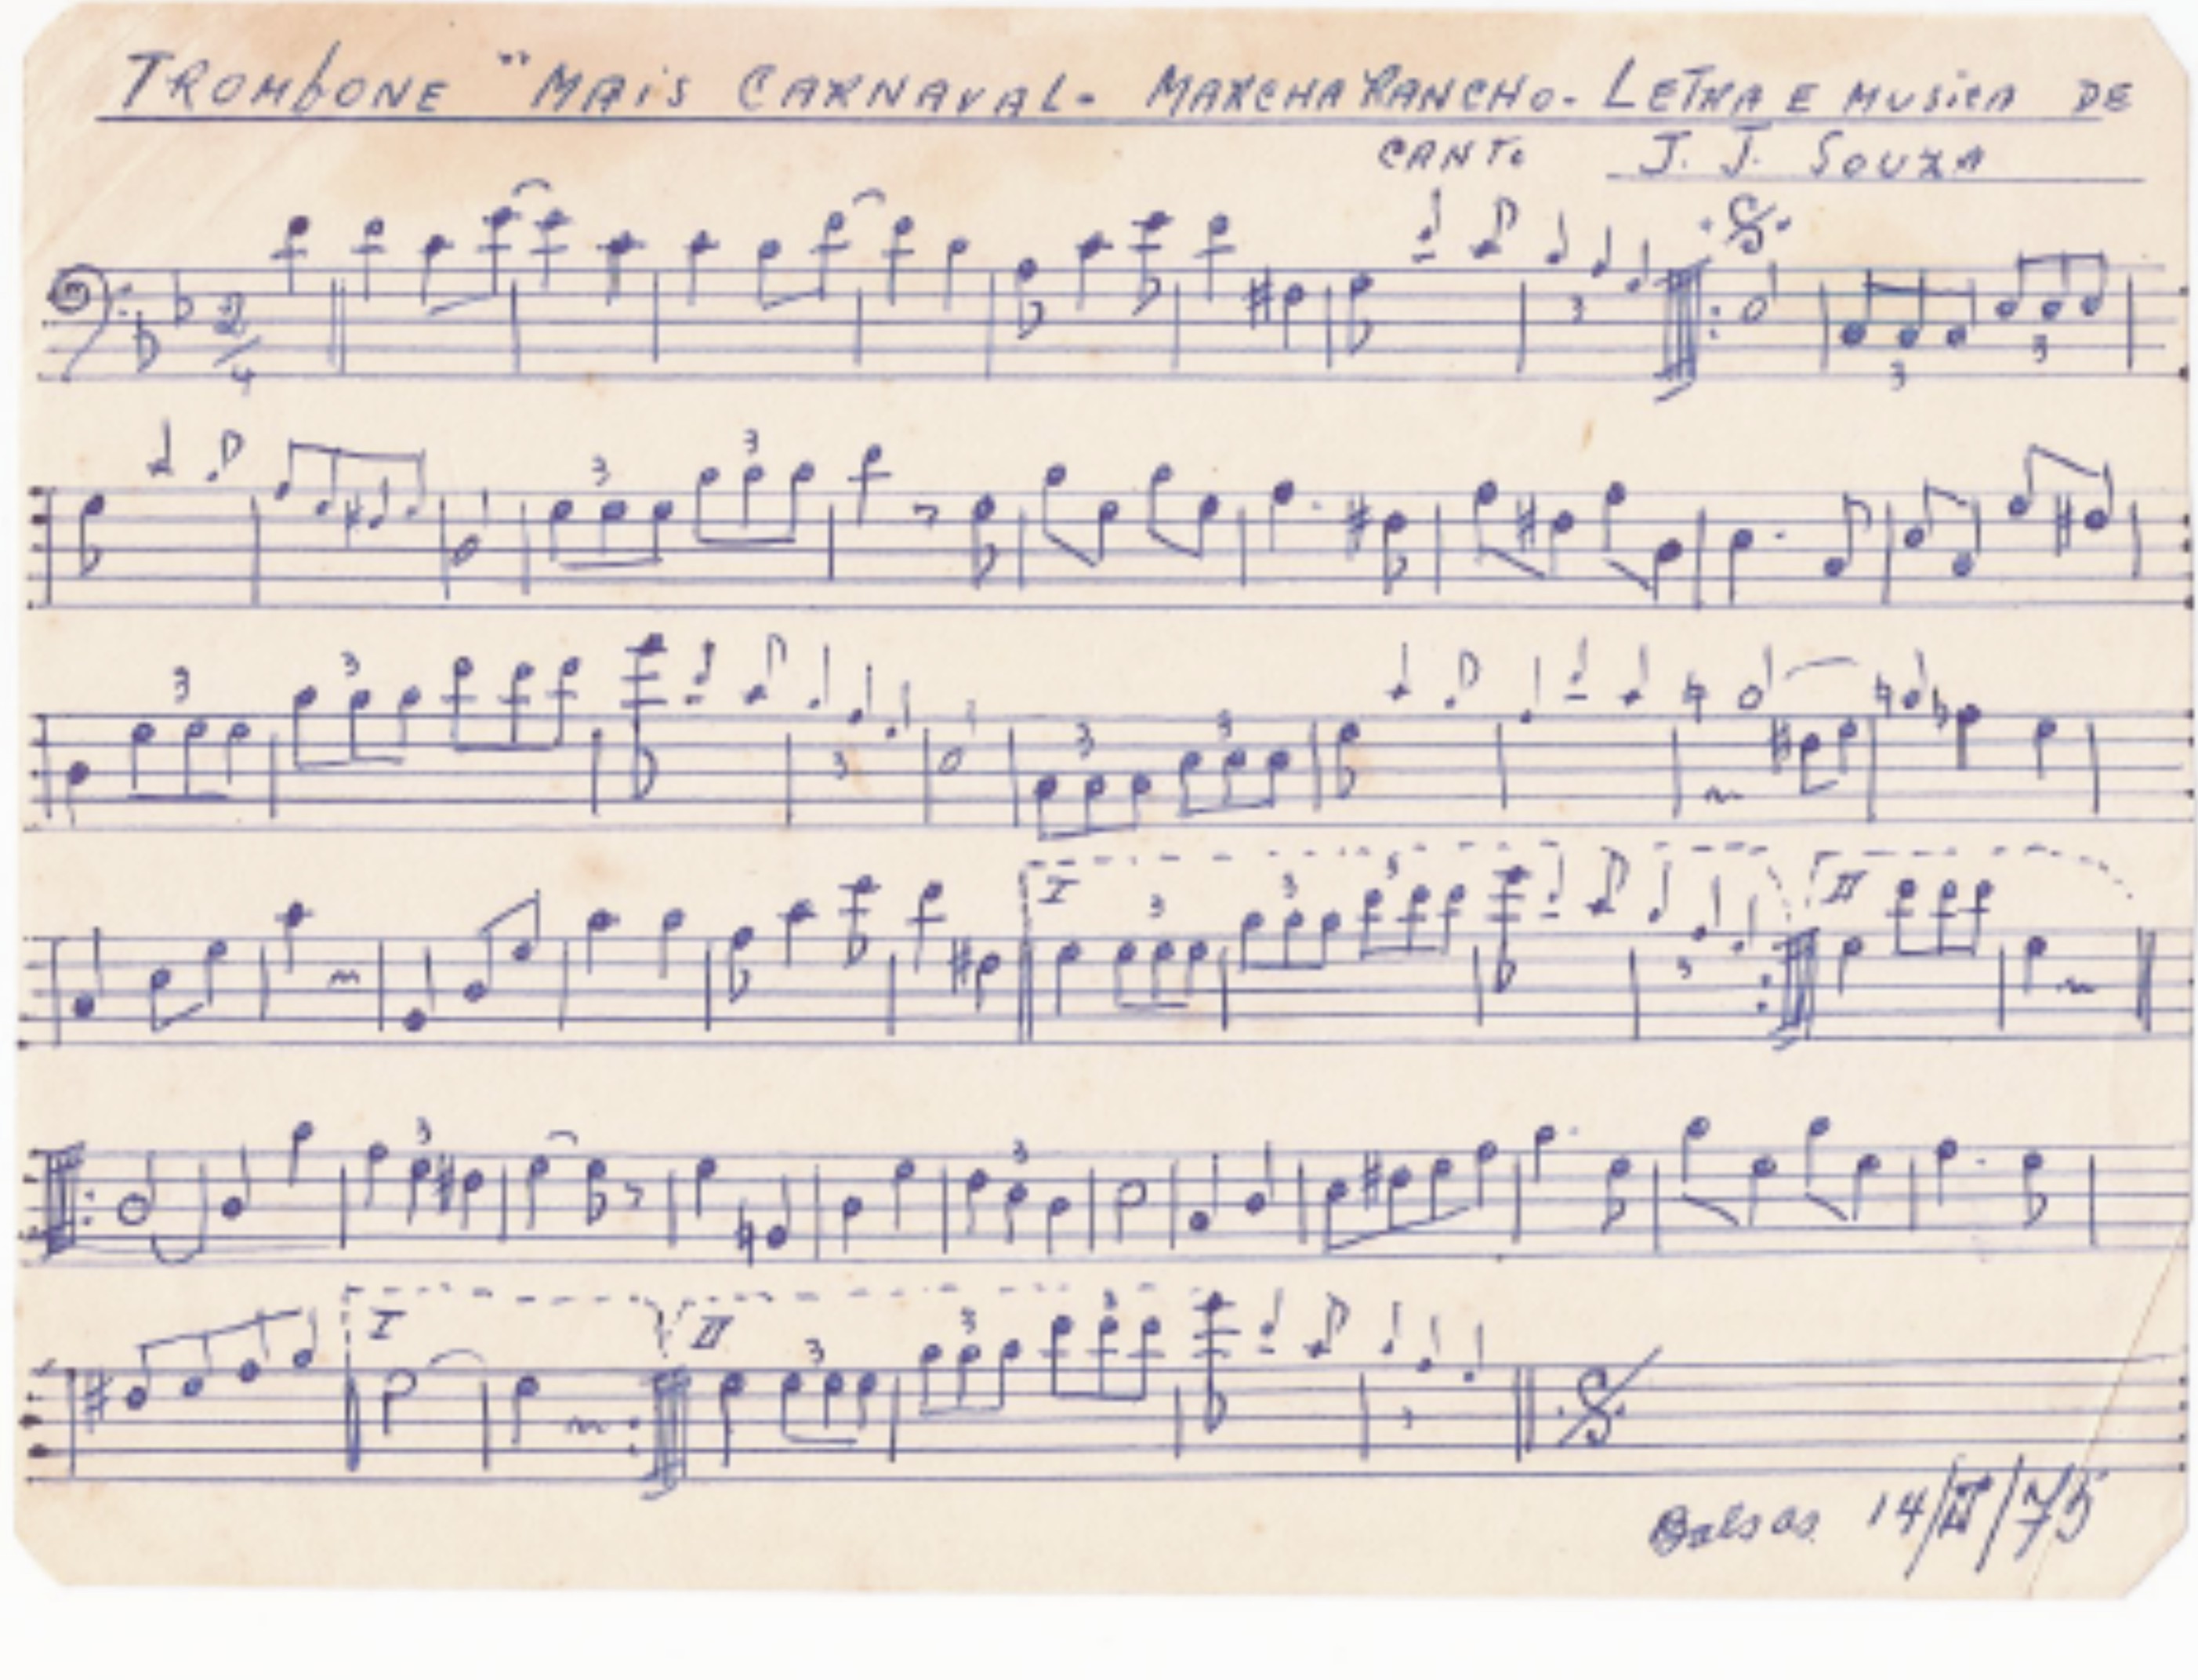 TROMBONE "MAIS CARNAVAL - MARCHA RANCHO - LETRA E MUSICA DE
CANTO J. J. SOUZA
2/4
3
3 3
3
3 3
3
3 3
3
3 3
I 3 3 3
3
II
3
3
I
II 3 3 3
3
Balsas 14/II/75